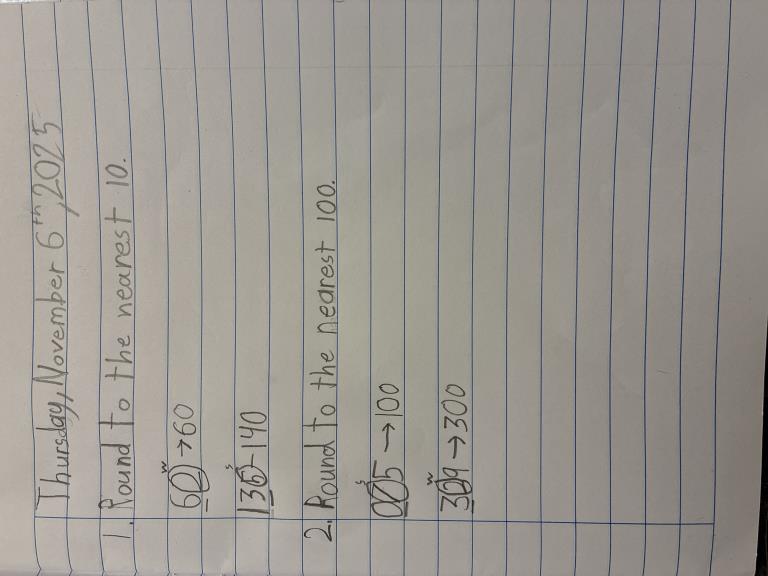 Thursday, November 6th, 2025
1. Round to the nearest 10.
w
→60
s
→140
2. Round to the nearest 100.
s
→100
w
309→300